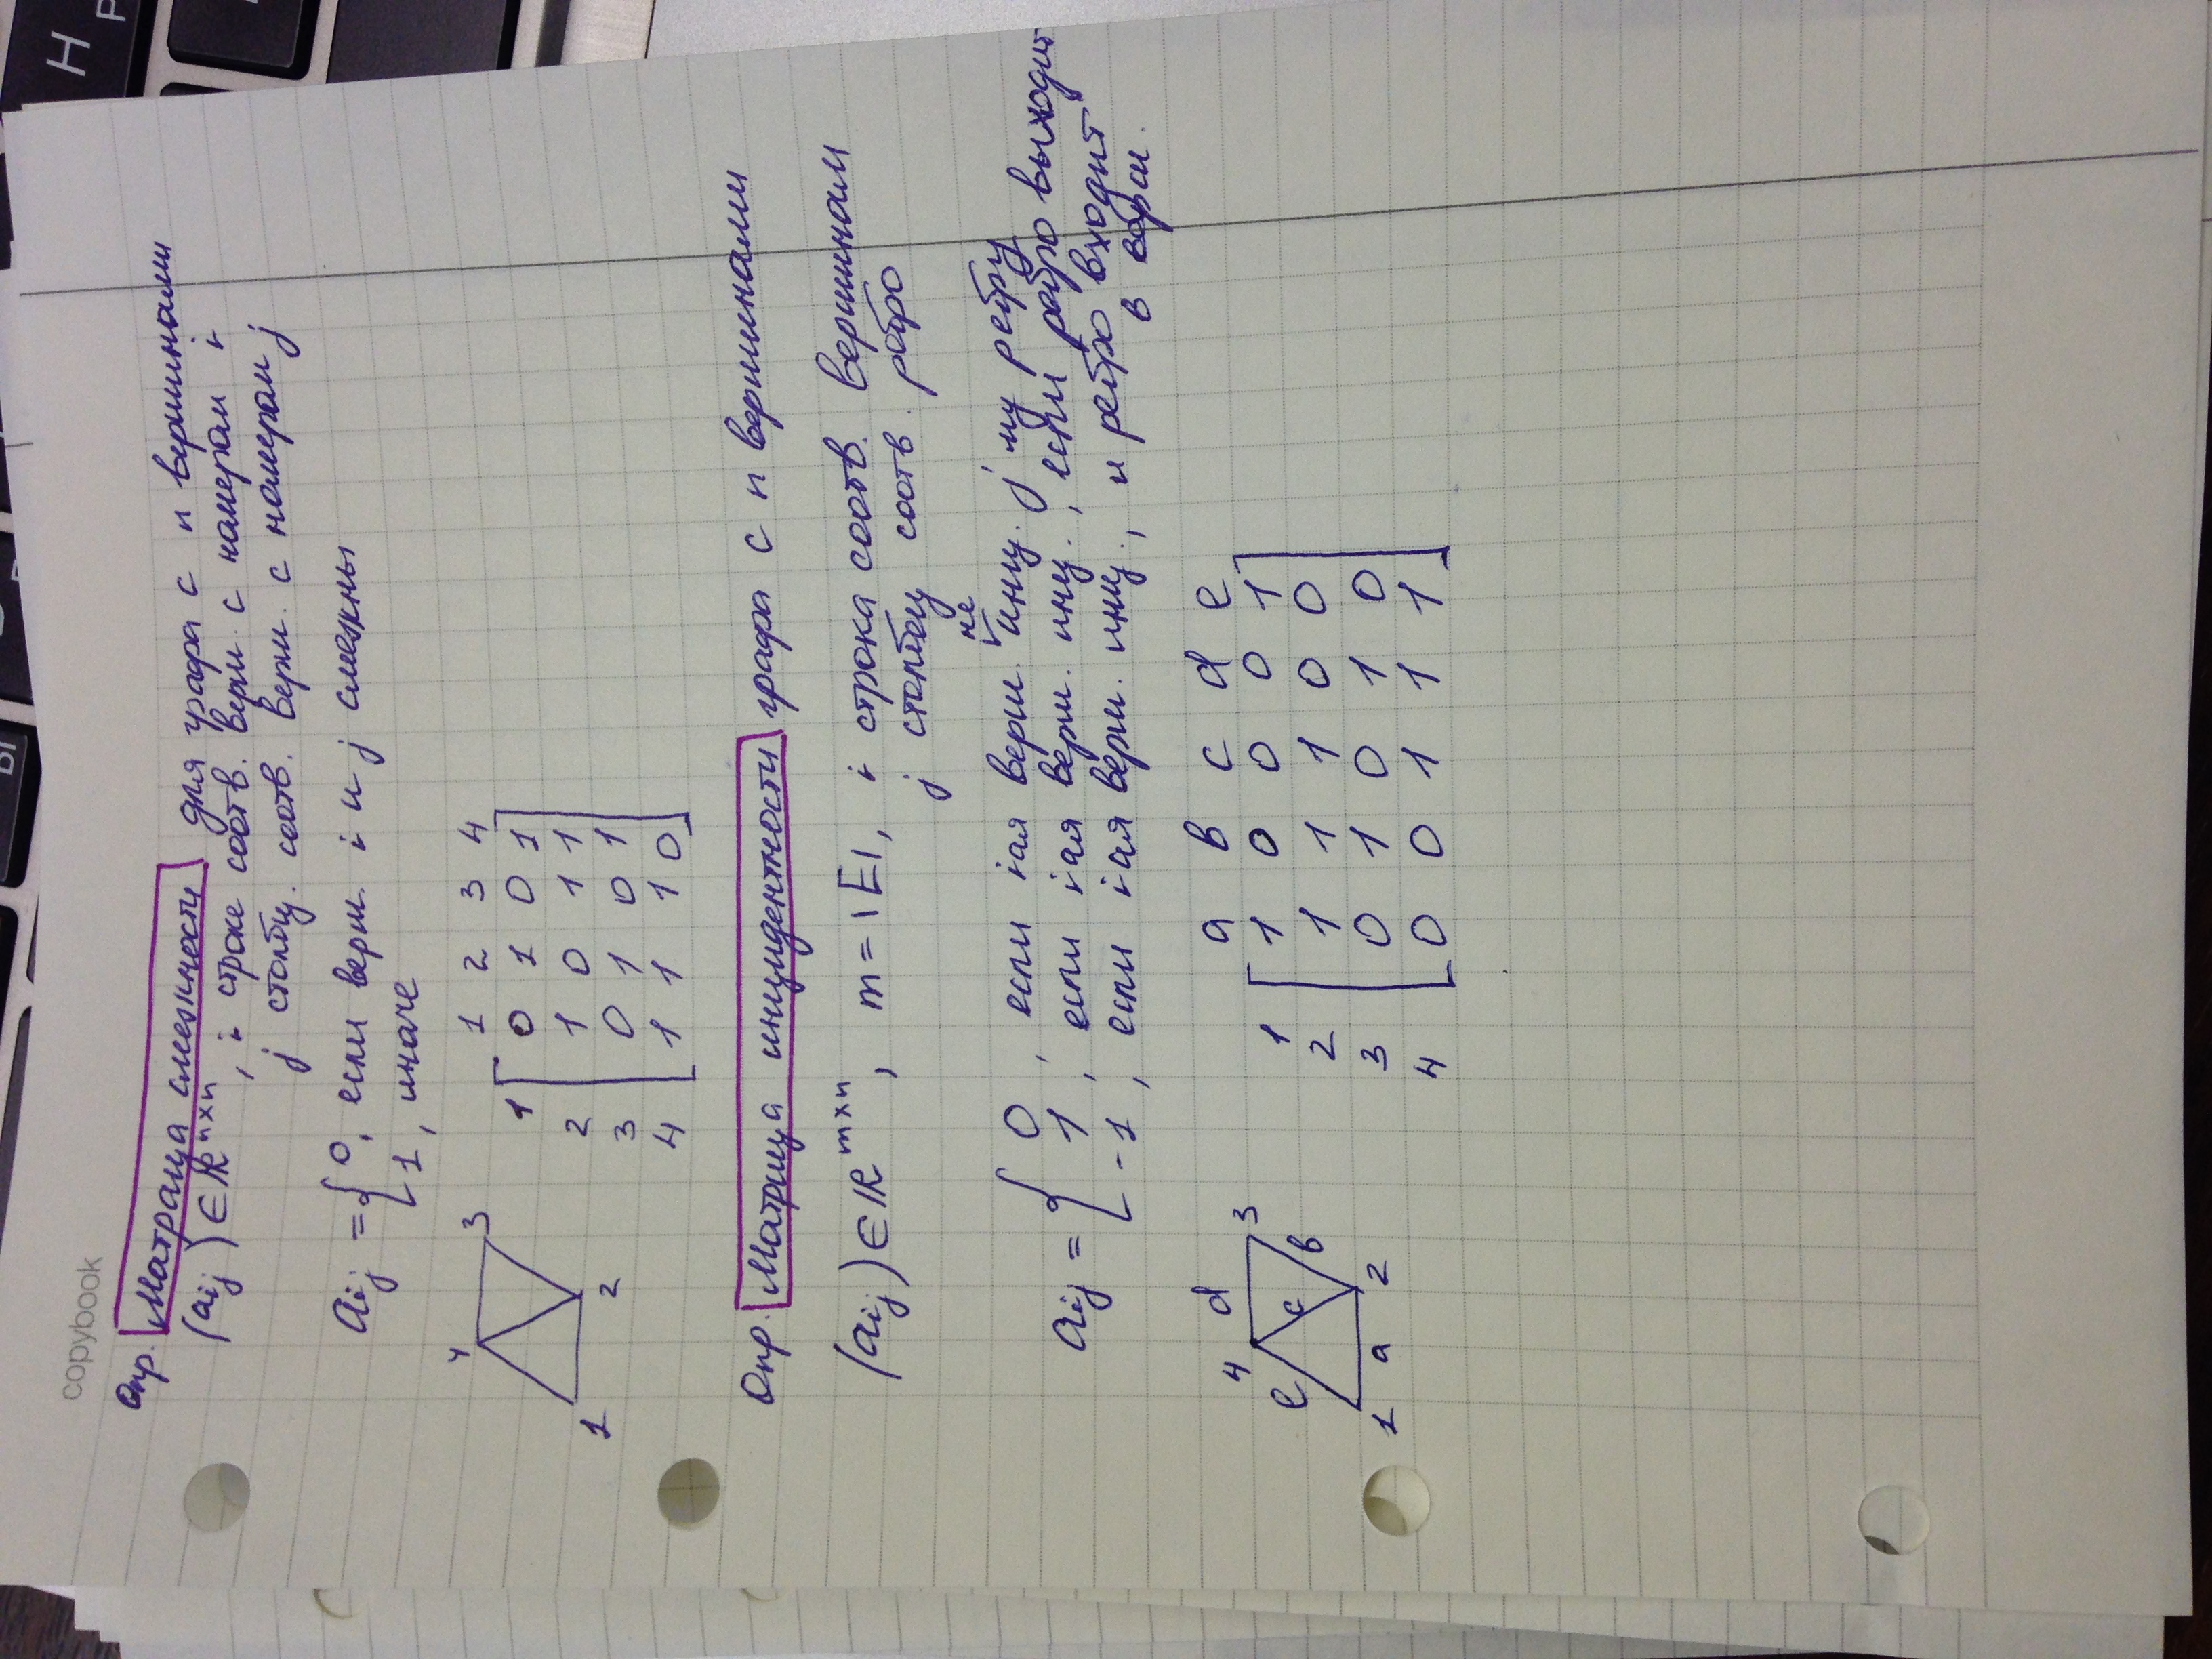 copybook
Опр. Матрица смежности для графа с n вершинами
(aij) ∈ ℝ^n×n, i строке соотв. верш. с номерам i
j столбу. соотв. верш. с номерам j
aij = { 0, если верш. i и j смежны
1, иначе
1 2 3 4
1 [0 1 0 1]
2 1 0 1 1
3 0 1 0 1
4 1 1 1 0
4 3
1 2
Опр. Матрица инцидентности графа с n вершинами
(aij) ∈ ℝ^m×n, m = |E|, i строка соотв. вершинам
j столбец соотв. ребро
не
aij = { 0, если iая верш. инц. j му ребру
1, если iая верш. инц., если ребро выходит
-1, если iая верш. инц., и ребро входит
в верш.
a b c d e
1 [1 0 0 0 1]
2 1 1 1 0 0
3 0 1 0 1 0
4 0 0 1 1 1
4 d 3
e c b
1 a 2
Н
Р
Ы